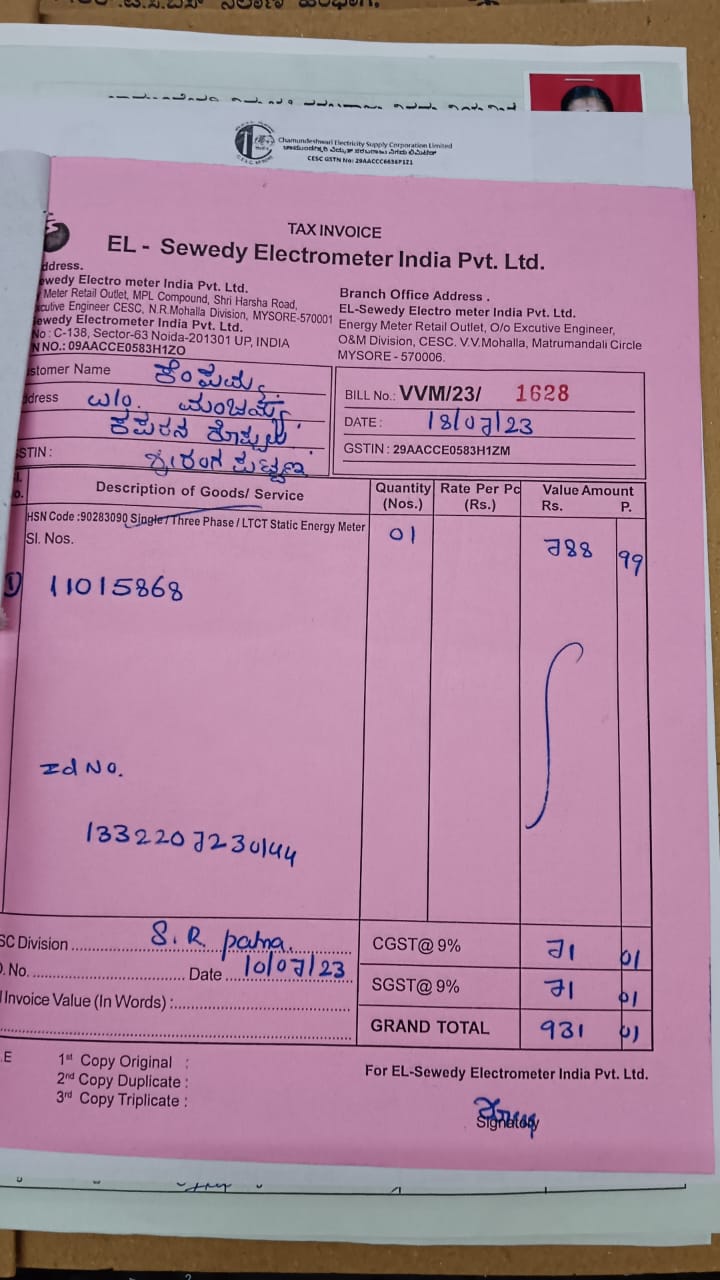 Chamundeshwari Electricity Supply Corporation Limited
ಚಾಮುಂಡೇಶ್ವರಿ ವಿದ್ಯುತ್ ಸರಬರಾಜು ನಿಗಮ ಲಿಮಿಟೆಡ್
CESC GSTN No: 29AACCC6636P1Z1
TAX INVOICE
EL - Sewedy Electrometer India Pvt. Ltd.
ddress.
ewedy Electro meter India Pvt. Ltd.
Meter Retail Outlet, MPL Compound, Shri Harsha Road,
xcutive Engineer CESC, N.R.Mohalla Division, MYSORE-570001
ewedy Electrometer India Pvt. Ltd.
No : C-138, Sector-63 Noida-201301 UP, INDIA
N NO.: 09AACCE0583H1ZO
Branch Office Address .
EL-Sewedy Electro meter India Pvt. Ltd.
Energy Meter Retail Outlet, O/o Excutive Engineer,
O&M Division, CESC. V.V.Mohalla, Matrumandali Circle
MYSORE - 570006.
stomer Name ಕೆಂಪಮ್ಮ
dress w/o.
STIN :
BILL No.: VVM/23/ 1628
DATE : 18/07/23
GSTIN : 29AACCE0583H1ZM
o. Description of Goods/ Service Quantity (Nos.) Rate Per Pc (Rs.) Value Amount Rs. P.
HSN Code :90283090 Single / Three Phase / LTCT Static Energy Meter 01 788 99
Sl. Nos.
① 11015868
Id No.
1332207230144
SC Division S.R. patna. CGST@ 9% 71 01
No. Date 10/07/23 SGST@ 9% 71 01
l Invoice Value (In Words) : GRAND TOTAL 931 01
.E 1st Copy Original :
2nd Copy Duplicate :
3rd Copy Triplicate :
For EL-Sewedy Electrometer India Pvt. Ltd.
Signatory